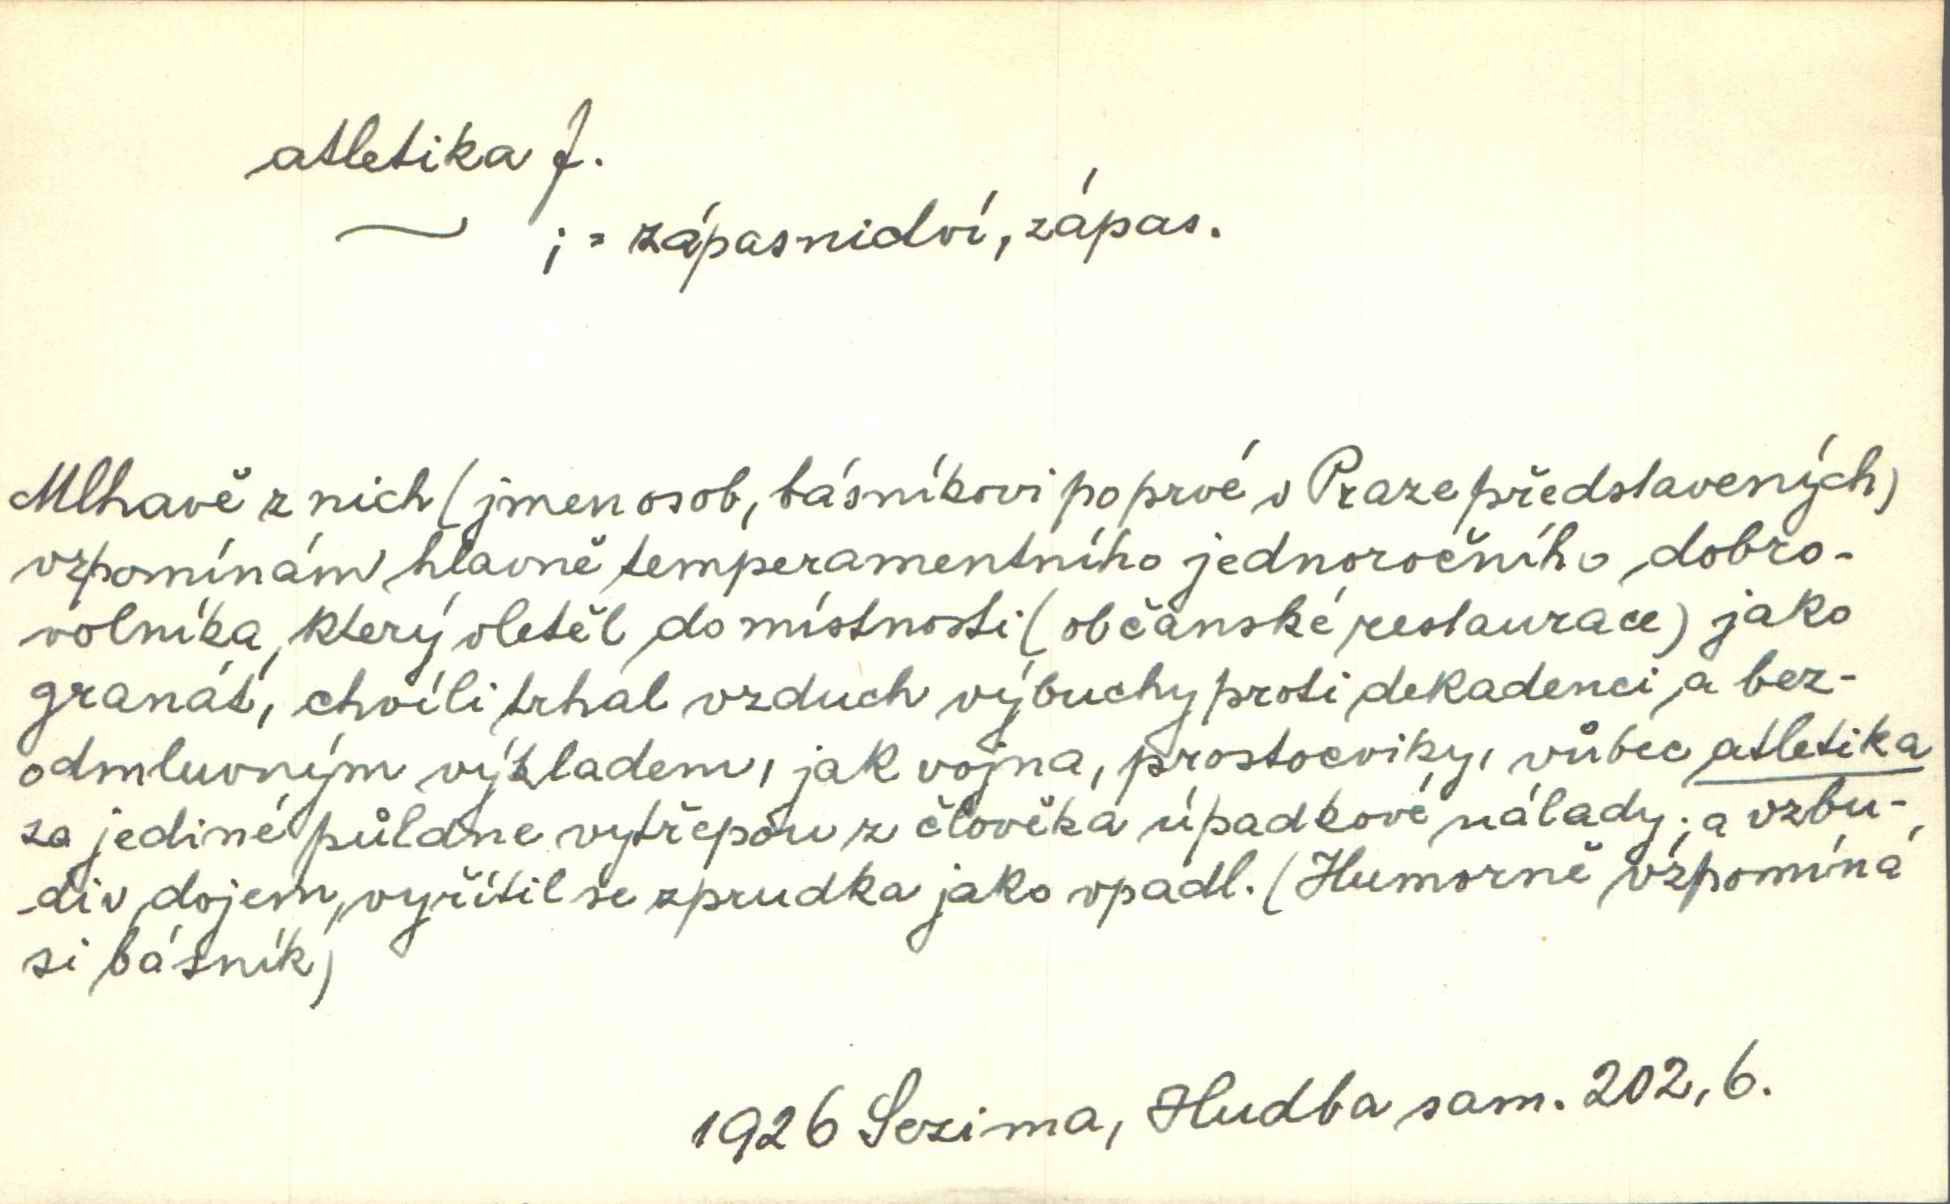 atletika f.
; = zápasnictví, zápas.
Mlhavě z nich (jmen osob, básníkovi poprvé v Praze představených)
vzpomínám hlavně temperamentního jednoročního dobro-
volníka, který vletěl do místnosti (občanské restaurace) jako
granát, chvíli trhal vzduch výbuchy proti dekadenci a bez-
odmluvným výkladem, jak vojna, prostocviky, vůbec atletika
za jediné půldne vytřepou z člověka úpadkové nálady; a vzbu-
div dojem, vyřítil se zprudka jako vpadl. (Humorně vzpomíná
si básník)
1926 Sezima, Hudba sam. 202, 6.